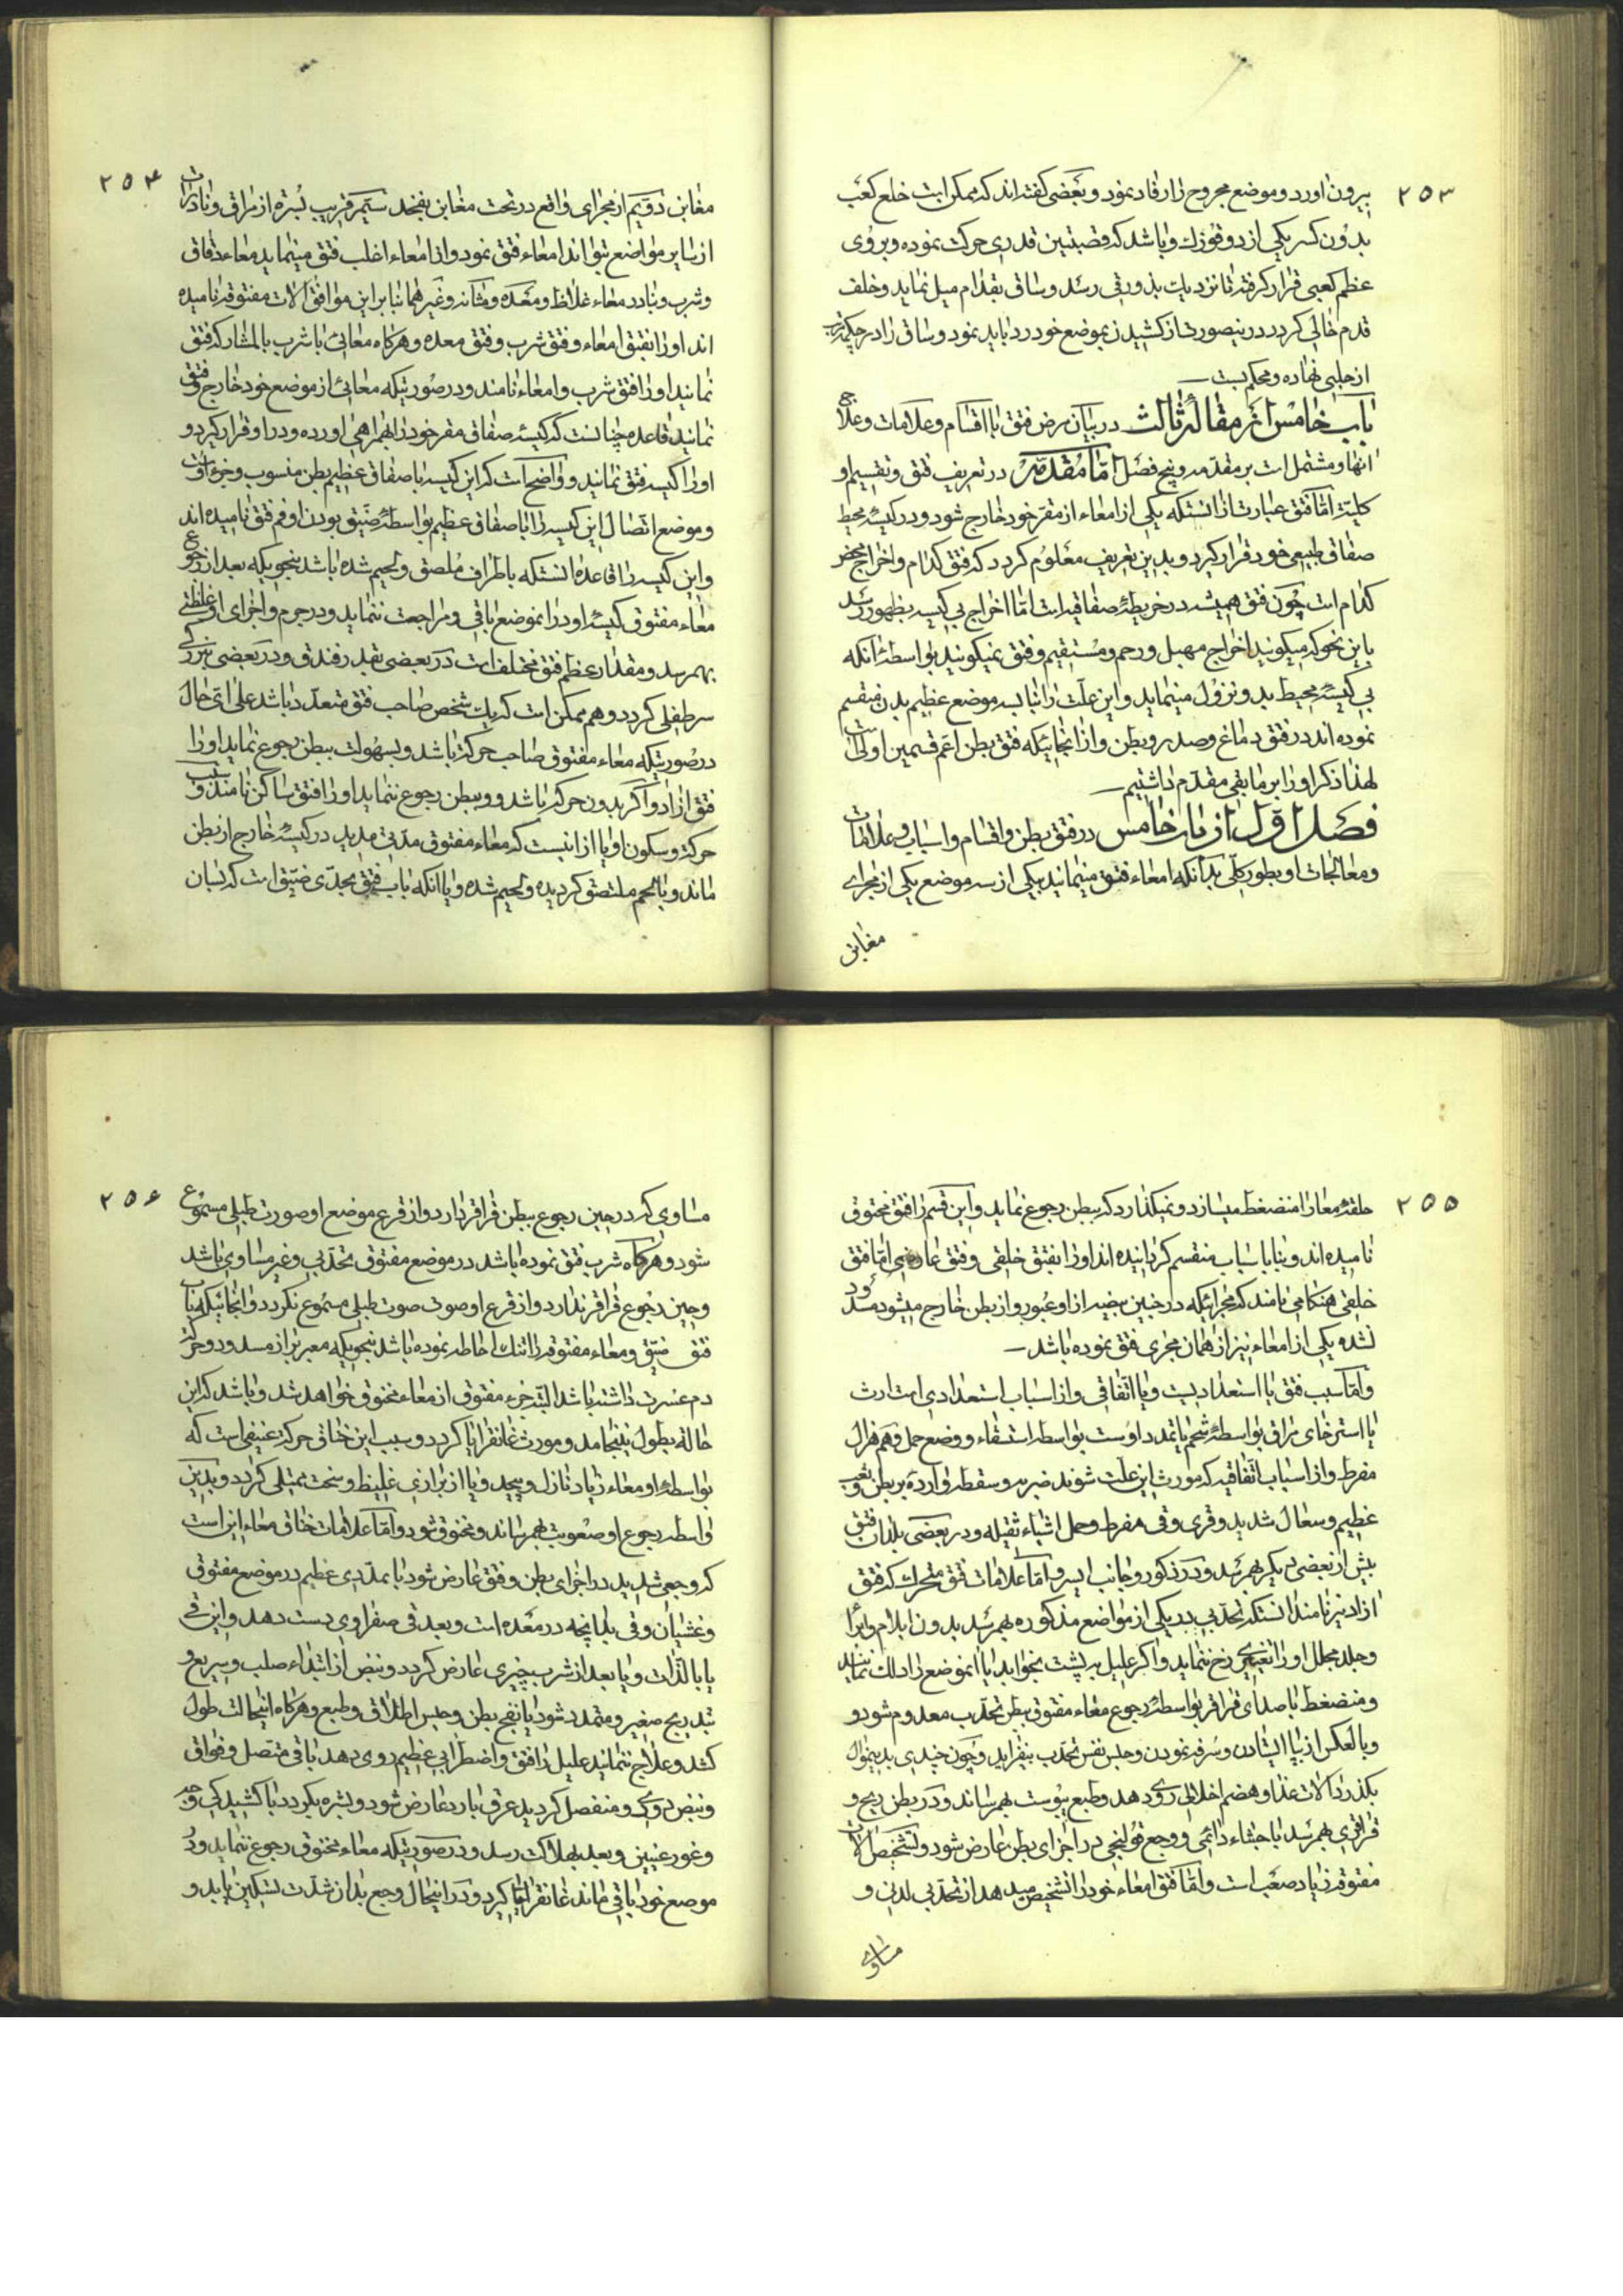 ۲۵۳
بیرون اورد و موضع مجروح را رفاد نمود و بعضی گفته‌اند که ممکن است خلع کعب
بدون کسر یکی از دو قوزک و یا شد که قصبتین قدری حرکت نموده و بروی
عظم کعبی قرار گرفته تا نزدیک بذورقی رسد و ساق بقدام میل نماید و خلف
قدم خالی گردد درینصورت از کشیدن بموضع خود رد باید نمود و ساق را در چکمه
از حلبی نهاده و محکم بست
باب خامس از مقاله ثالث در بیان مرض فتق با اقسام و علامات و علاج
انها و مشتمل است بر مقدمه و پنج فصل اما مقدمه در تعریف فتق و تقسیم او
کلیة اما فتق عبارت از انستکه یکی از امعاء از مقر خود خارج شود و در کیسه محیط
صفاق طبیعی خود قرار گیرد و بدین تعریف معلوم گردد که فتق کدام و اخراج محض
کدام است چون فتق همیشه در خریطه صفاقیه است اما اخراج بی کیسه بظهور رسد
باین نحو که میگویند اخراج مهبل و رحم و مستقیم و فتق نمیگویند بواسطه انکه
بی کیسه محیط بدو نزول مینماید و این علت را بنا بسه موضع عظیم بدن منقسم
نموده‌اند در فتق دماغ و صدر و بطن و از انجائیکه فتق بطن اعم قسمین اولی است
لهذا ذکر او را بر مابقی مقدم داشتیم
فصل اول از باب خامس در فتق بطن و اقسام و اسباب و علامات
و معالجات او بطور کلی بدانکه امعاء فتق مینمایند بیکی از سه موضع یکی از مجرای
مغابن
۲۵۴
مغابن دویم از مجرای واقع در تحت مغابن بفخذ سیم قریب بسره از مراق و نادرات
از سایر مواضع بتواند امعاء فتق نمود و از امعاء اغلب فتق مینماید معاء دقاق
و شرب و نادر معاء غلاظ و معده و مثانه و غیر هما بنا براین موافق الات مفتوقه نامیده
اند او را بفتق امعاء و فتق شرب و فتق معده و هرکاه معائی با شرب بالمشارکه فتق
نمایند او را فتق شرب و امعاء نامند و در صورتیکه معائی از موضع خود خارج و فتق
نمایند قاعده چنانست که کیسه صفاق مقر خود را همراهی اورده و در او قرار گیرد و
او را کیسه فتق نمانید و واضح است که این کیسه با صفاق عظیم بطن منسوب و جزء اوست
و موضع اتصال این کیسه را با صفاق عظیم بواسطه ضیق بودن او فم فتق نامیده‌اند
و این کیسه را قاعده انستکه باطراف ملصق و لحیم شده باشد بنحویکه بعد از رجوع
معاء مفتوق کیسه او در انموضع باقی و مراجعت ننماید و در جرم و اجزای او غلظتی
بهمرسد و مقدار عظم فتق مختلف است در بعضی بقدر فندق و در بعضی بزرگی
سر طفلی گردد و هم ممکن است که یک شخص صاحب فتق متعدد باشد علی ای حال
در صورتیکه معاء مفتوق صاحب حرکت باشد و بسهولت ببطن رجوع نماید او را
فتق ازاد و اگر بدون حرکت باشد و ببطن رجوع ننماید او را فتق ساکن نامند و سبب
حرکت و سکون او یا از اینست که معاء مفتوق مدتی مدید در کیسه خارج از بطن
ماند و با لحم ملتصق گردیده و لحیم شده و یا انکه باب فتق بحدی ضیق است که لسان
۲۵۵
حلقه معا را منضغط میسازد و نمیگذارد که ببطن رجوع نماید و این قسم را فتق مختوق
نامیده‌اند و بنا باسباب منقسم گردانیده‌اند او را بفتق خلقی و فتق عارضی اما فتق
خلقی هنگامی نامند که مجرائیکه در جنین بیضه از او عبور و از بطن خارج میشود مسدود
نشده یکی از امعاء نیز از همان مجری فتق نموده باشد
و اما سبب فتق یا استعدادیست و یا اتفاقی و از اسباب استعدادی است ارث
یا استرخای مراق بواسطه شحم یا تمدد اوست بواسطه استسقاء و وضع حمل و هم هزال
مفرط و از اسباب اتفاقیه که مورث این علت شوند ضربه و سقطه وارده بر بطن و تعب
عظیم و سعال شدید و قری و قی مفرط و حمل اشیاء ثقیله و در بعضی بلدان فتق
بیش از بعضی دیگر بهمرسد و در ذکور و جانب ایسر و اما علامات فتق متحرک که فتق
ازاد نیز نامند انستکه تحدبی در یکی از مواضع مذکوره بهمرسد بدون ایلام و ایرا
و جلد مجلل او را تغییری رخ ننماید و اگر علیل بر پشت بخوابد یا انموضع را دلک نمایند
و منضغط با صدای قراقر بواسطه رجوع معاء مفتوق ببطن تحدب معدوم شود و
و بالعکس از بپا ایستادن و سرفه نمودن و حبس نفس تحدب بیفزاید و چون چندی بدینمنوال
بگذرد در الات غذا و هضم اخلالی روی دهد و طبع یبوست بهمرساند و در بطن ریح و
قراقری بهمرسد با جشاء دائمی و وجع قولنجی در اجزای بطن عارض شود و تشخیص الات
مفتوقه زیاد صعب است و اما فتق امعاء خود را تشخیص میدهد از تحدبی لدن و
مساوی
۲۵۶
مساوی که در حین رجوع ببطن قراقر دارد و از قرع موضع او صورت طبلی مسموع
شود و هرکاه شرب فتق نموده باشد در موضع مفتوق تحدبی و غیر مساوی باشد
و حین رجوع قراقر ندارد و از قرع او صوت صوت طبلی مسموع نگردد و انجائیکه باب
فتق ضیق و معاء مفتوقه را تنک احاطه نموده باشد بنحویکه معبر براز مسدود و حرکت
دم عسرت داشته باشد البته جزء مفتوق از معاء مختوق خواهد شد و باشد که این
حالة بطول بینجامد و مورث غانقرایا گردد و سبب این خناق حرکة عنیفی است که
بواسطه او معاء زیاد نازل و پیچد و یا از برازی غلیظ و سخت ممتلی گردد و بدین
واسطه رجوع او صعوبت بهمرساند و مختوق شود و اما علامات خناق معاء این است
که وجعی شدید در اجزای بطن و فتق عارض شود با تمددی عظیم در موضع مفتوق
و غشیان و قی بدانچه در معده است و بعد قی صفراوی دست دهد و این قی
یا بالذات و یا بعد از شرب چیزی عارض گردد و نبض از ابتداء صلب و سریع و
بتدریج صغیر و متمدد شود با نفخ بطن و حبس اطلاق و طبع و هرکاه اینحالت طول
کشد و علاج ننمایند علیل را قلق و اضطرابی عظیم روی دهد با قی متصل و فواق
و نبض دوی و منفصل گردید عرق بارد عارض شود و بشره بگردد با کشیدگی وجه
و غور عینین و بعد بهلاکت رسد و در صورتیکه معاء مختوق رجوع ننماید و در
موضع خود باقی ماند غانقرایا گیرد و در اینحال وجع بدان شدت تسکین یابد و